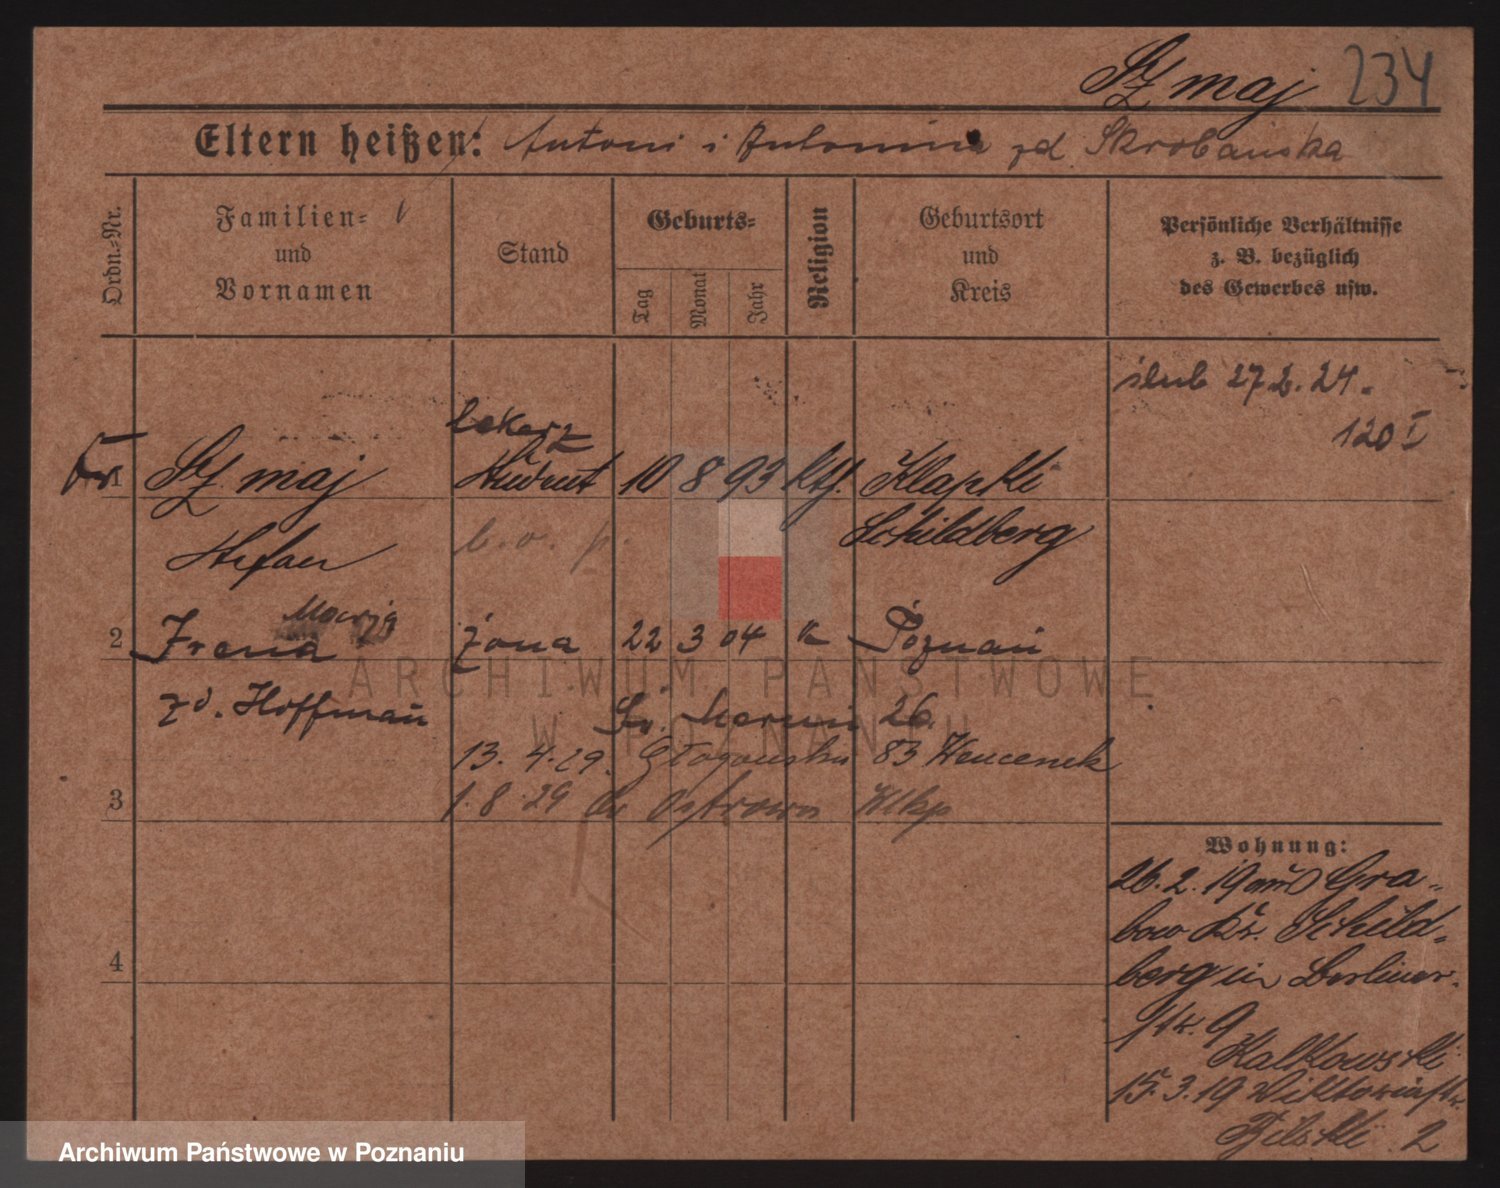 Szmaj 234
Eltern heißen: Antoni i Antonina zd. Skrobańska
Ordn.=Nr.
Familien=
und
Vornamen
Stand
Geburts=
Tag
Monat
Jahr
Religion
Geburtsort
und
Kreis
Persönliche Verhältnisse
z. B. bezüglich
des Gewerbes usw.
ślub 27.2.24.
120 I
lekarz
1 Szmaj Student 10 8 93 kth. Klapki
Stefan b.o. p. Schildberg
Maria
2 Irena żona 22 3 04 " Poznań
zd. Hoffman Św. Marcin 26.
13. 4. 29. Głogowska 83
3 1. 8. 29 do Ostrowa Wlkp
4
Wohnung:
26. 2. 19 aus Gra-
bow Kr. Schild-
berg in Berliner-
str. 9
Kalkowski
15. 3. 19 Viktoriastr.
2
ARCHIWUM PAŃSTWOWE
W POZNANIU
Archiwum Państwowe w Poznaniu